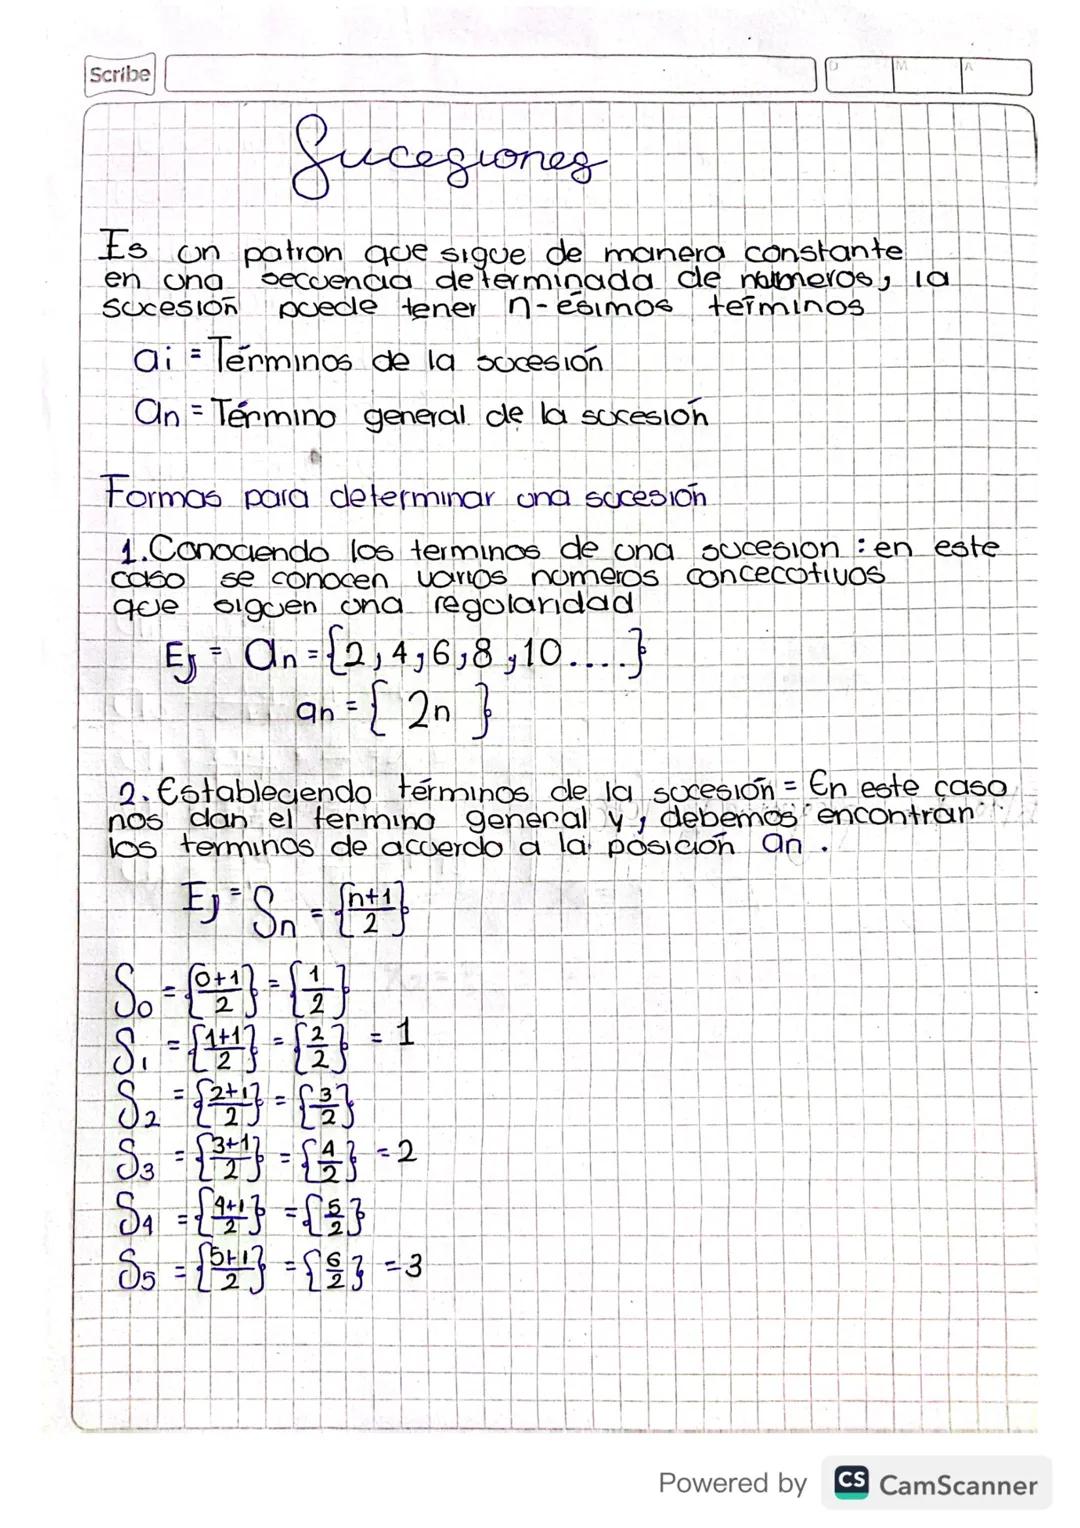 Scribe
D M A
Sucesiones
Es un patron que sigue de manera constante
en una secuencia determinada de números, la
sucesión puede tener n-ésimos términos
ai = Términos de la sucesión
an = Término general de la sucesión
Formas para determinar una sucesión
1. Conociendo los terminos de una sucesion : en este
caso se conocen varios numeros concecutivos
que siguen una regularidad
Ej = an = {2, 4, 6, 8, 10....}
an = { 2n }
2. Estableciendo términos de la sucesión = En este caso
nos dan el termino general y, debemos encontrar
los terminos de acuerdo a la posición an .
Ej = Sn = {n+1/2}
S0 = {0+1/2} = {1/2}
S1 = {1+1/2} = {2/2} = 1
S2 = {2+1/2} = {3/2}
S3 = {3+1/2} = {4/2} = 2
S4 = {4+1/2} = {5/2}
S5 = {5+1/2} = {6/2} = 3
Powered by CS CamScanner